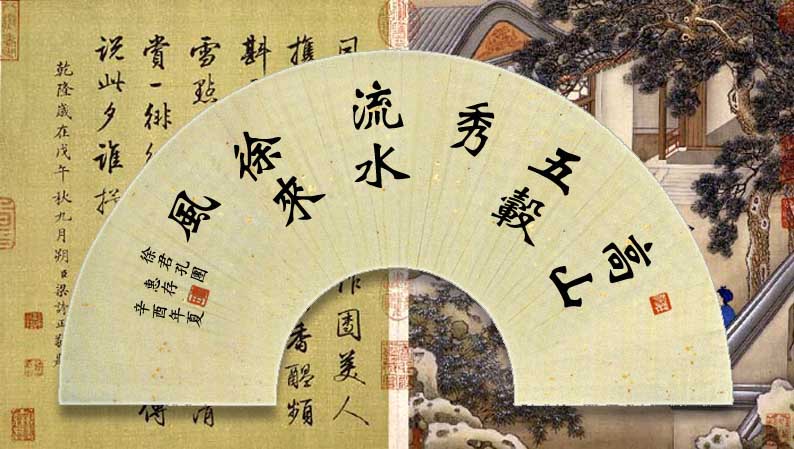 亭
五轂
秀
流水
徐來
風
徐君孔圖
惠存
辛酉年夏
同
作圖美人
攜
香醞頻
斟
雪點
清
賞一徘
得
說此夕誰
乾隆歲在戊午秋九月朔臣梁詩正敬題